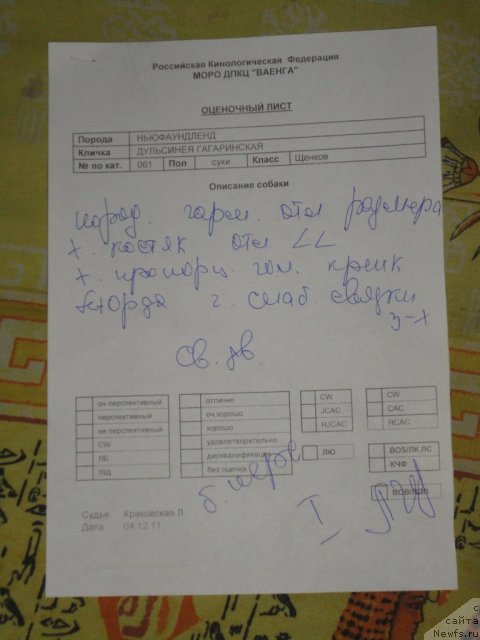 Российская Кинологическая Федерация
МОРО ДПКЦ "ВАЕНГА"
ОЦЕНОЧНЫЙ ЛИСТ
Порода НЬЮФАУНДЛЕНД
Кличка ДУЛЬСИНЕЯ ГАГАРИНСКАЯ
№ по кат. 061 Пол суки Класс Щенков
Описание собаки
пород. гарм. отл размера
х. костяк отл LL
х. пропорц. гол. крепк
г. слаб. связки
з-х
св. дв
оч.перспективный
перспективный
не перспективный
CW
ЛБ
ЛЩ
отлично
оч.хорошо
хорошо
удовлетворительно
дисквалификация
без оценки
CW
JCAC
RJCAC
ЛЮ
CW
CAC
RCAC
BOS/ЛК,ЛС
КЧФ
BOB/ЛПП
I
Судья Краковская Л.
Дата 04.12.11
с
сайта
Newfs.ru